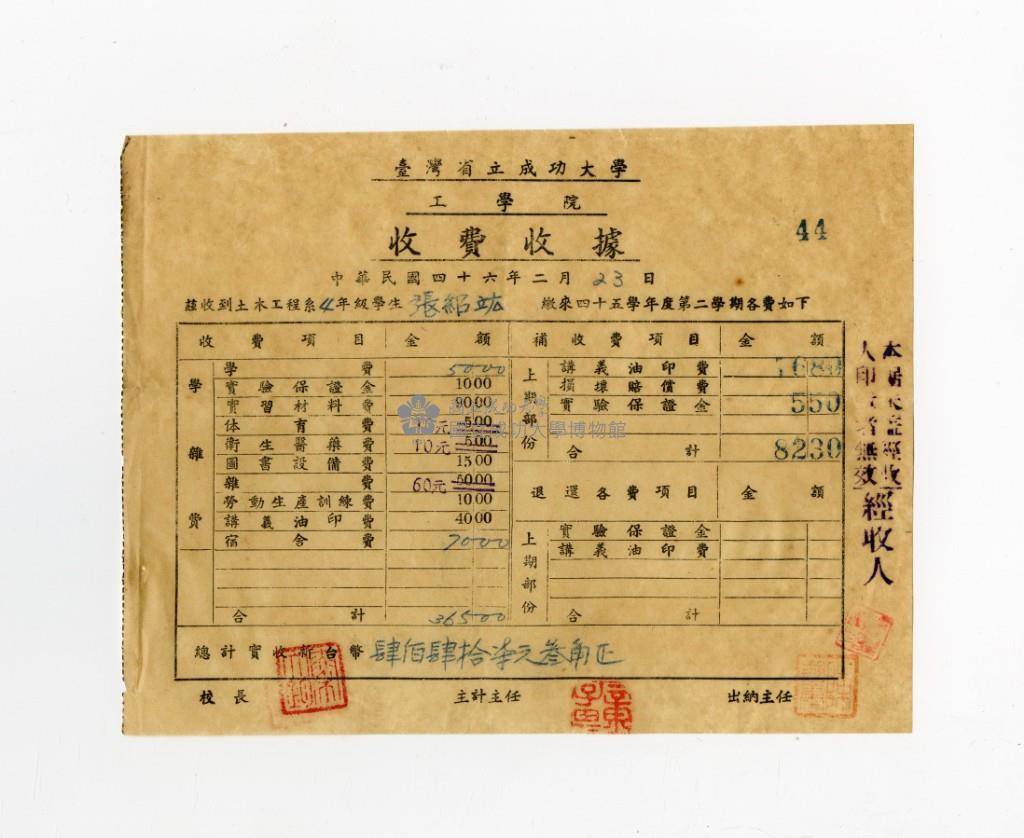 臺灣省立成功大學
工學院
收費收據
44
中華民國四十六年二月23日
茲收到土木工程系4年級學生張紹竑 繳來四十五學年度第二學期各費如下
收費項目 金額 補收費項目 金額
學雜費
學費 5000
實驗保證金 1000
實習材料費 9000
體育費 元 500
衛生醫藥費 10元 500
圖書設備費 1500
雜費 60元 6000
勞動生產訓練費 1000
講義油印費 4000
宿舍費 7000
合計 36500
上期部份
講義油印費 7680
損壞賠償費
實驗保證金 550
合計 8230
退還各費項目 金額
上期部份
實驗保證金
講義油印費
合計
總計實收新台幣肆佰肆拾柒元叁角正
校長 主計主任 出納主任
本 經收
人印 者無效
經收人
國立成功大學博物館